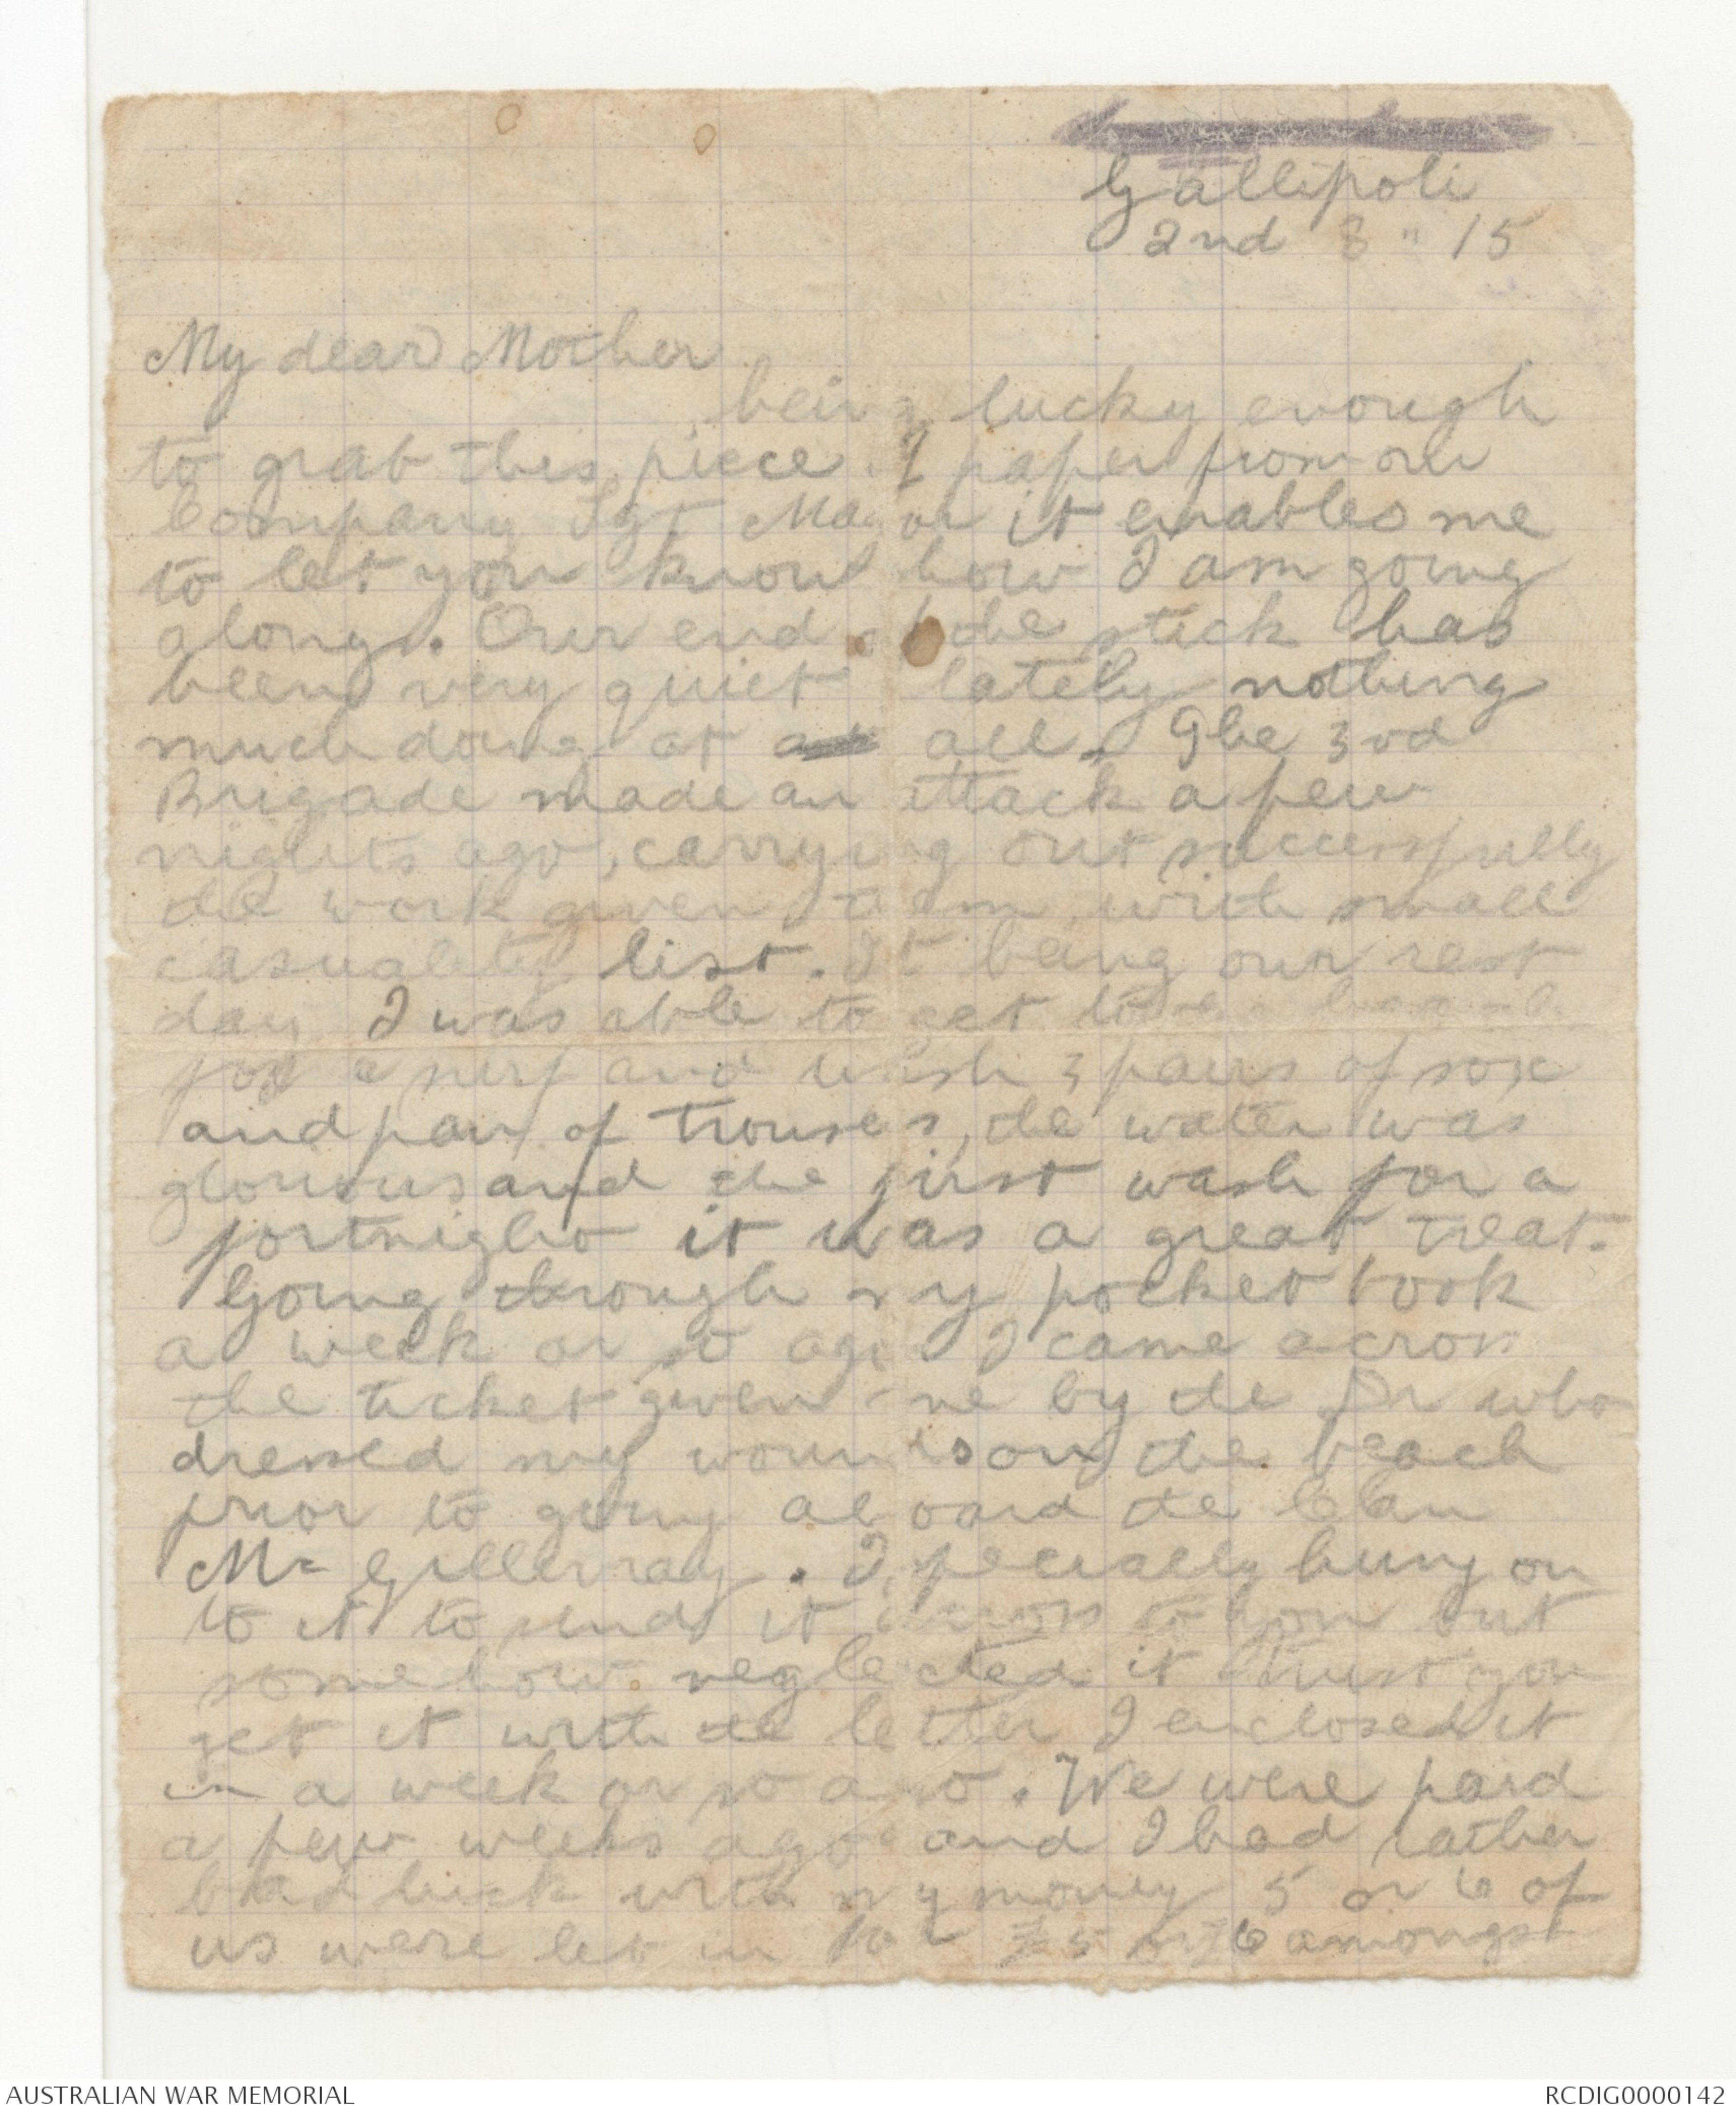 Gallipoli
2nd 8 " 15
My dear Mother
being lucky enough
to grab this piece of paper from our
Company Sgt Major it enables me
to let you know how I am going
along. Our end of the stick has
been very quiet lately nothing
much doing at all. The 3rd
Brigade made an attack a few
nights ago, carrying out successfully
the work given them with small
casuality list. It being our rest
day I was able to get to the beach
for a surf and wash 3 pairs of sox
and pair of trousers, the water was
glorious and the first wash for a
fortnight it was a great treat.
Going through my pocket book
a week or so ago I came across
the ticket given me by the Dr who
dressed my wounds on the beach
prior to going aboard the Clan
Mc Gillivray. I specially hung on
to it to send it across to you but
somehow neglected it trust you
get it with the letter I enclosed it
in a week or so ago. We were paid
a few weeks ago and I had rather
bad luck with my money 5 or 6 of
us were let in for £5 or £6 amongst
AUSTRALIAN WAR MEMORIAL
RCDIG0000142